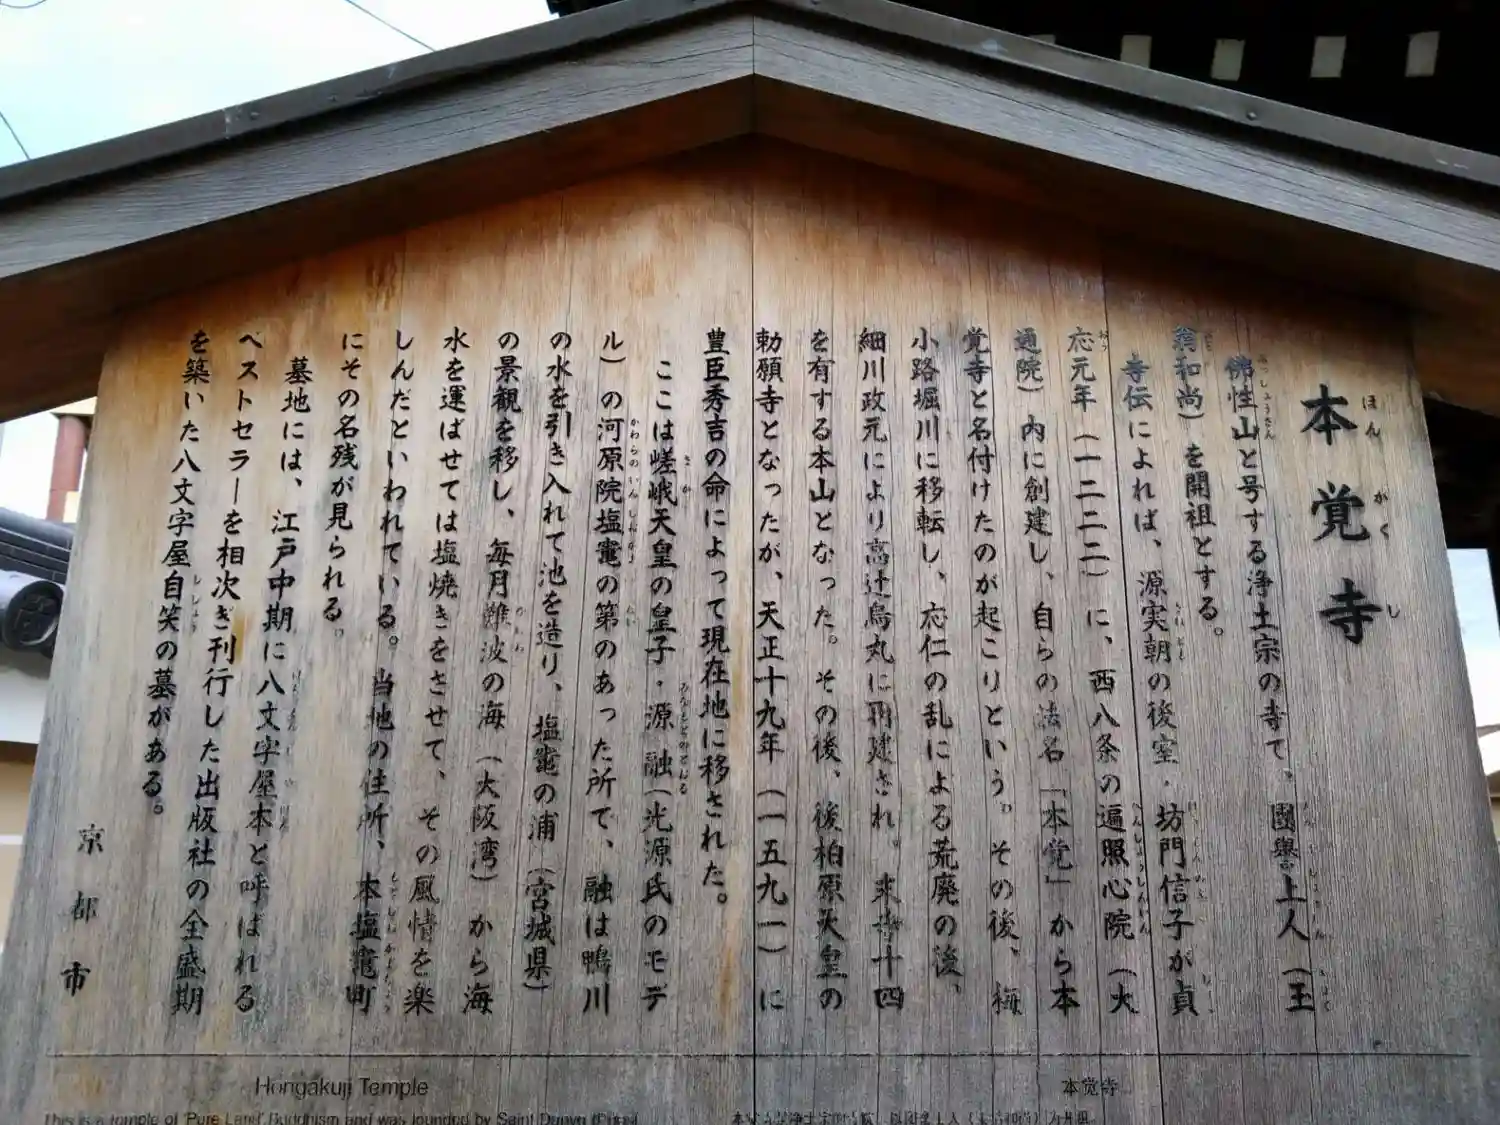 本覚寺
佛性山と号する浄土宗の寺で、團誉上人（玉
翁和尚）を開祖とする。
寺伝によれば、源実朝の後室・坊門信子が貞
応元年（一二二二）に、西八条の遍照心院（大
通院）内に創建し、自らの法名「本覚」から本
覚寺と名付けたのが起こりという。その後、梅
小路堀川に移転し、応仁の乱による荒廃の後、
細川政元により高辻烏丸に再建され。末寺十四
を有する本山となった。その後、後柏原天皇の
勅願寺となったが、天正十九年（一五九一）に
豊臣秀吉の命によって現在地に移された。
ここは嵯峨天皇の皇子・源融（光源氏のモデ
ル）の河原院塩竈の第のあった所で、融は鴨川
の水を引き入れて池を造り、塩竈の浦（宮城県）
の景観を移し、毎月難波の海（大阪湾）から海
水を運ばせては塩焼きをさせて、その風情を楽
しんだといわれている。当地の住所、本塩竈町
にその名残が見られる。
墓地には、江戸中期に八文字屋本と呼ばれる
ベストセラーを相次ぎ刊行した出版社の全盛期
を築いた八文字屋自笑の墓がある。
京都市
Hongakuji Temple
This is a temple of 'Pure Land' Buddhism and was founded by Saint
本覚寺